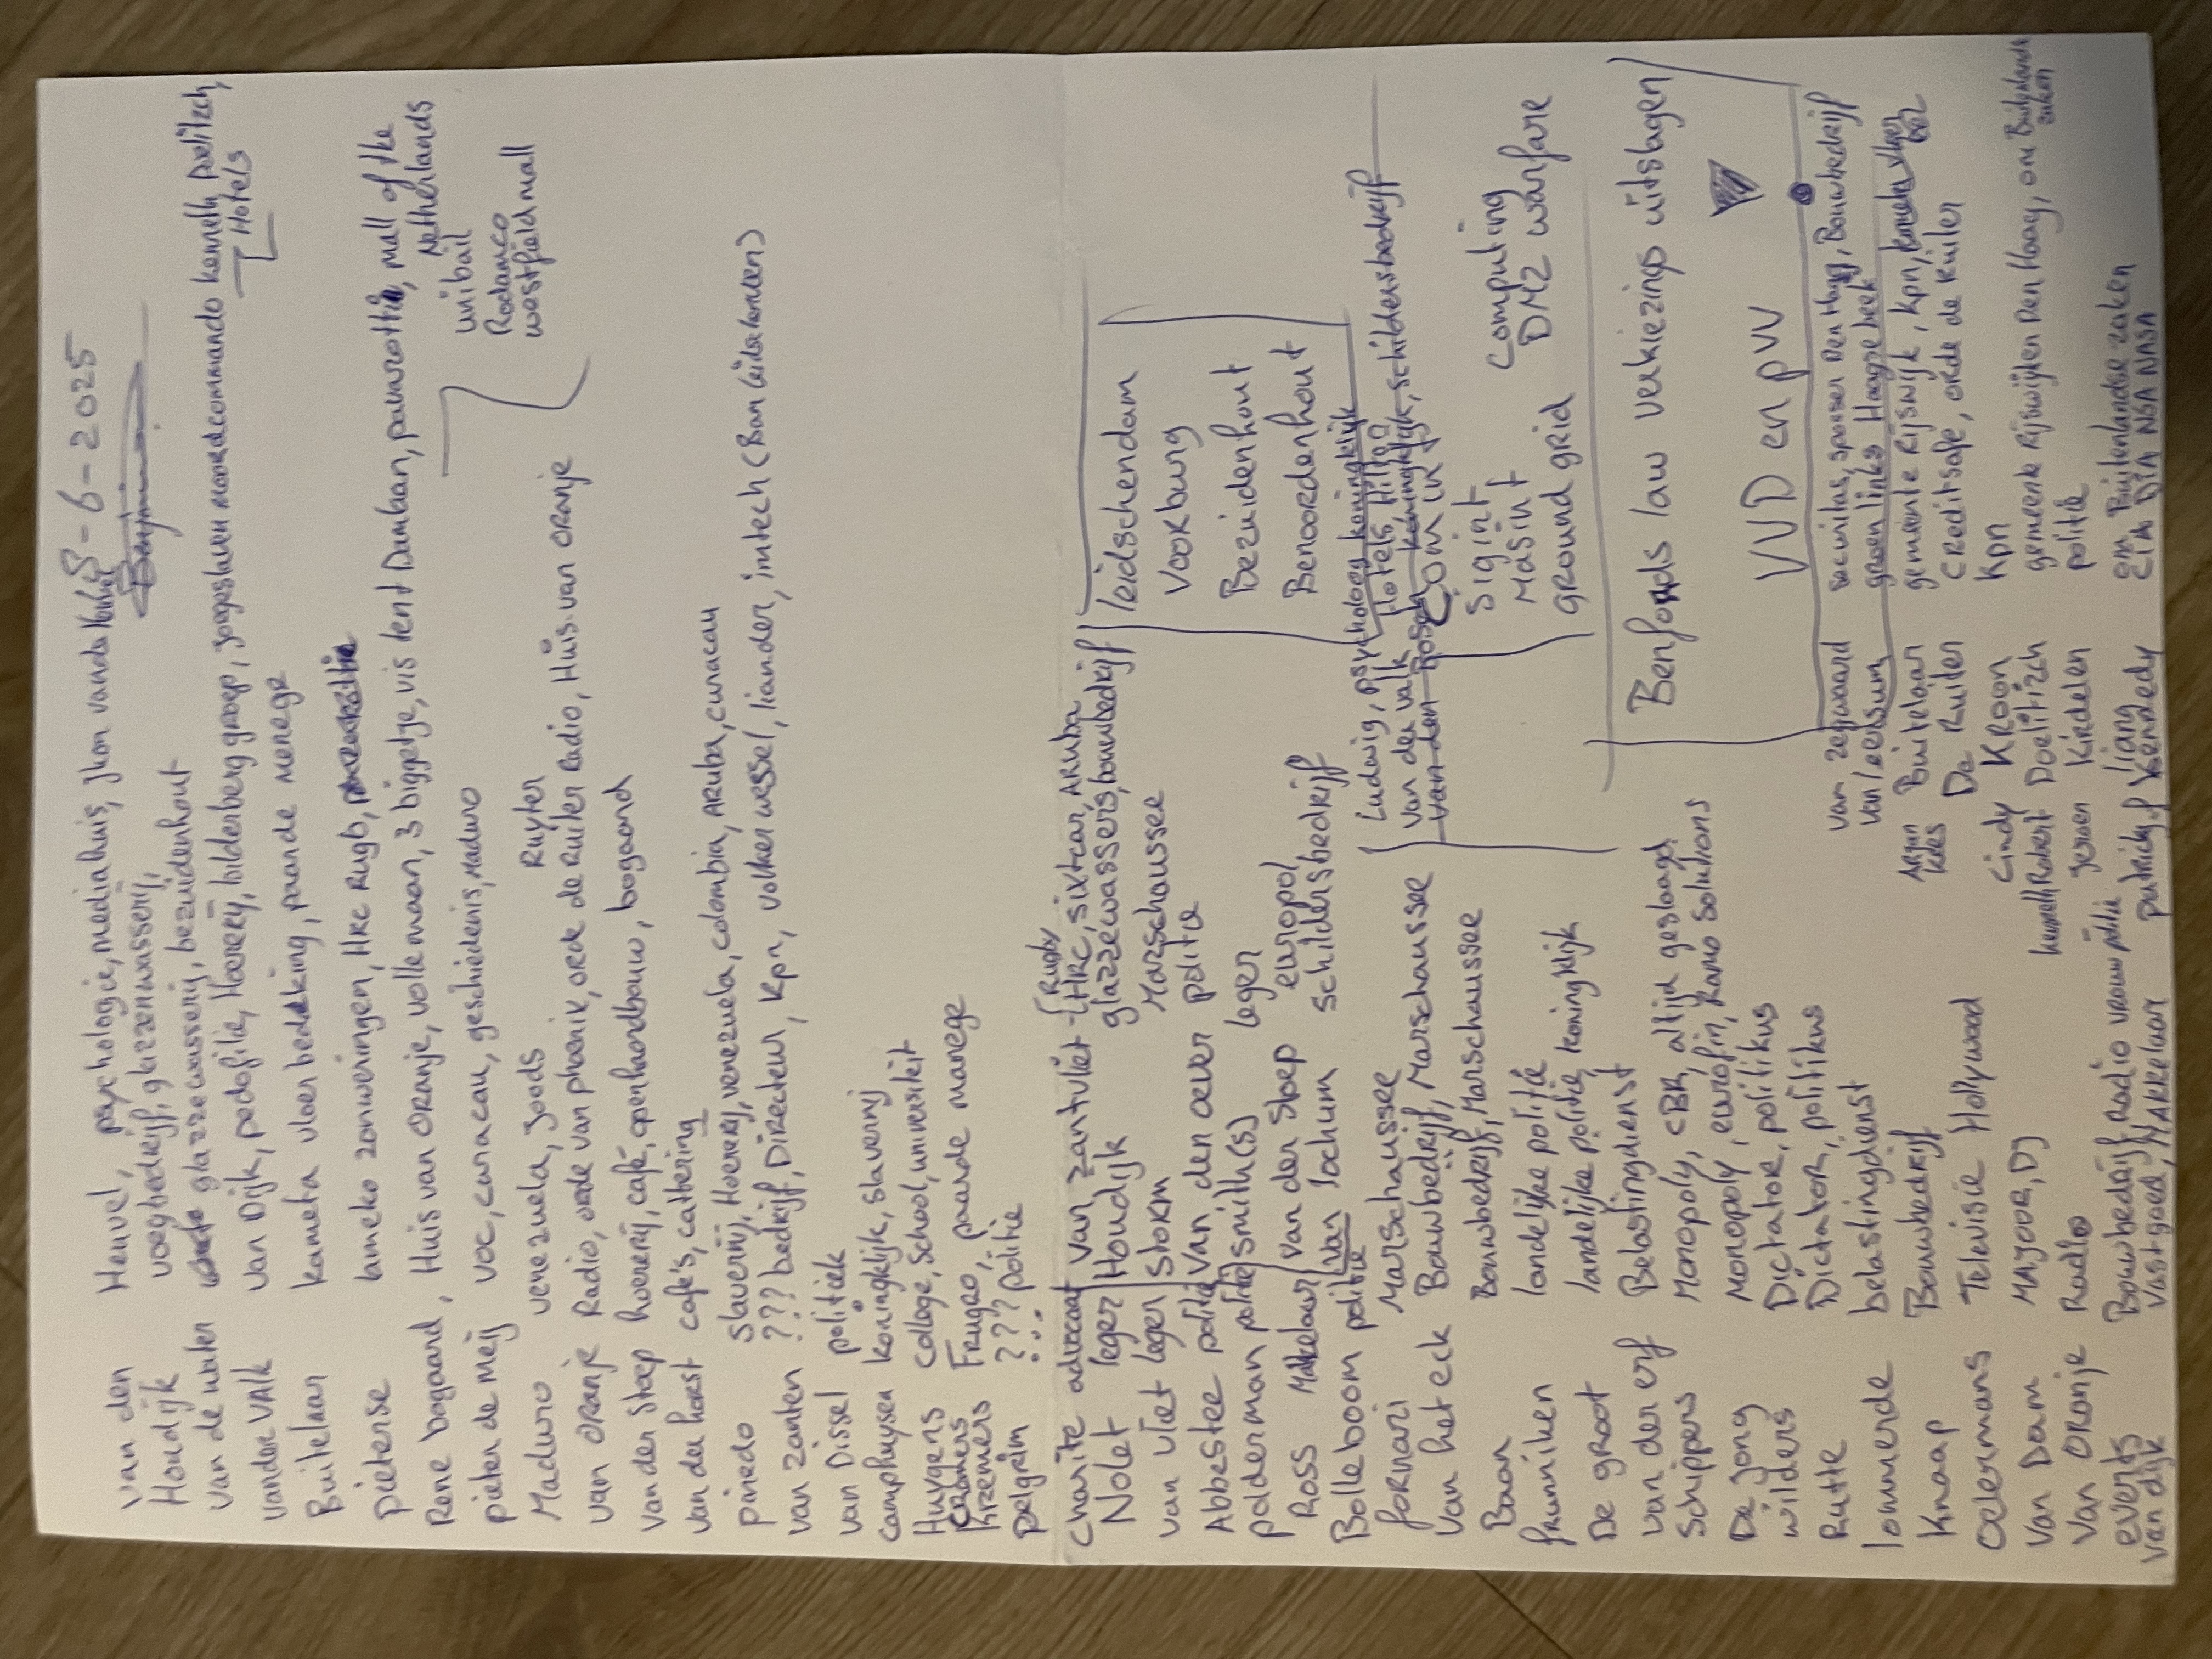 8-6-2025
Benjamin
van den Heuvel, psychologie, mediahuis, jhon vande
Houdijk voegbedrijf, glazenwasserij,
van de water glazzewasserij, bezuidenhout
vander VAlk van Dijk, pedofilie, Hoererij, bilderberg groep, mordcommando kennedy politzch,
Hotels
Buitelaar kameta vloerbedekking, paarde menege
pieterse lameko zonweringen, Hkc Rugb,
Rene bogaard, Huis van oranje, volle maan, 3 biggetje, vis tent Damlaan, pavarotti, mall of the Netherlands
unibail
Rodamco
westfield mall
pieter de meij voc, curacau, geschiedenis, maduro
Maduro venezuela, joods Ruyter
van oranje Radio, orde van phoenix, orde de Ruiter Radio, Huis van oranje
van der stoep hoererij, café, openhaardbouw, bogaard
van der horst cafe's, cathering
pinedo slavernij, Hoererij, venezuela, colombia, Aruba, curacau
van zanten ??? bedrijf, Directeur, kpn, volker wessel, liander, intech (Ban leidse lanen)
van Dissel politiek
camphuysen koningklijk, slavernij
Huygens college, school, universiteit
kremers Frugro, paarde manege
pelgrim ??? politie
charite advocaat van zantvliet - Rugby HKC, sixtcar, Aruba
Nolet leger Houdijk glazzewassers, bouwbedrijf
van vliet leger storm Marschaussee
Abbestee politie van den oever politie
polderman politie smith(s) leger
Ross Makelaar van der stoep europol
Bolleboom politie van lochum schildersbedrijf
fornari Marschaussee
van het eck Bouwbedrijf, Marschaussee
Baan Bouwbedrijf, Marschaussee
frunniken landelijke politie
De groot landelijke politie, koningklijk
van der erf Belastingdienst
schippers Monopoly, CBR, altijd geslaagd
De jong Monopoly, eurofin, kano solutions
wilders Dictator, politikus
Rutte Dictator, politikus
lommerde belastingdienst
Knaap Bouwbedrijf
oelermans Televisie Hollywood
van Dam MAjoor, DJ
van oranje Radio
everts Bouwbedrijf, Radio vrouw politie
van dijk vastgoed, MAkelaar
leidschendam
Voorburg
Bezuidenhout
Benoordenhout
Ludwig, psycholoog koningklijk
van der valk Hotels Hilton
van den Bosch koningklijk, schildersbedrijf
comint
sigint computing
Masint DMZ warfare
ground grid
Benfords law verkiezings uitslagen
VVD en pvv
van zegvaard securitas, sponser Den Haag, Bouwbedrijf
van leersum groen links Haagse hoek
Arjan kees Buitelaar gemeente Rijswijk, kpn,
De Ruiter creditsafe, orde de Ruiter
Cindy Kroon kpn
Robert Doelitzch gemeente Rijswijk en Den Haag, om Buitenlandse zaken
jeroen Kindelen politie
liang om Buitenlandse zaken
patrick Kennedy CIA DIA NSA NASA